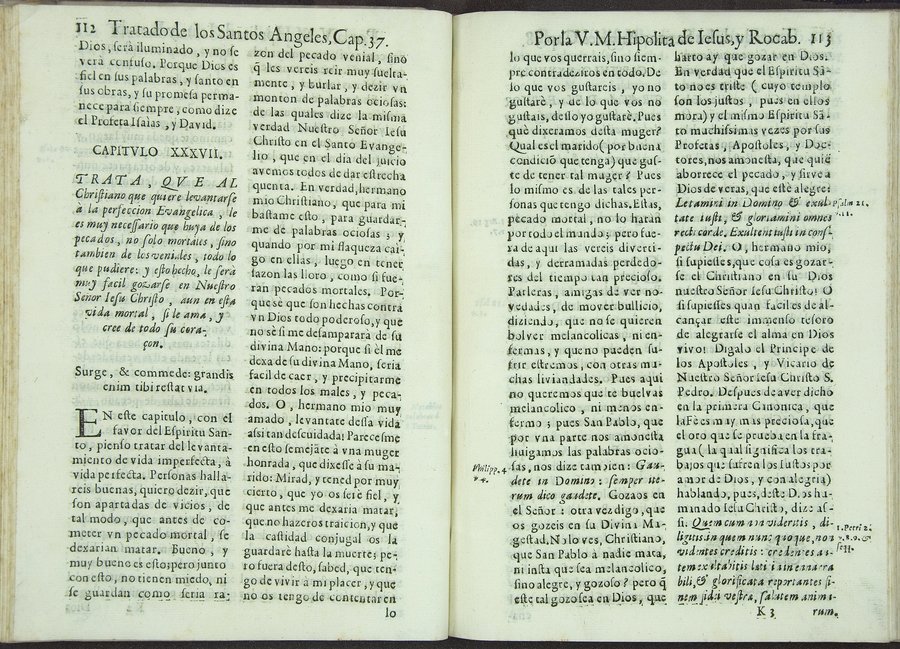 112 Tratado de los Santos Angeles, Cap. 37.
Dios, serà iluminado, y no se
verà confuso. Porque Dios es
fiel en sus palabras, y santo en
sus obras, y su promesa perma-
nece para siempre, como dize
el Profeta Isaias, y David.
CAPITVLO XXXVII.
TRATA, QVE AL
Christiano que quiere levantarse
à la perfeccion Evangelica, le
es muy necessario que huya de los
pecados, no solo mortales, sino
tambien de los veniales, todo lo
que pudiere: y esto hecho, le serà
muy facil gozarse en Nuestro
Señor Iesu Christo, aun en esta
vida mortal, si le ama, y
cree de todo su cora-
çon.
Surge, & commede: grandis
enim tibi restat via.
EN este capitulo, con el
favor del Espiritu San-
to, pienso tratar del levanta-
miento de vida imperfecta, à
vida perfecta. Personas halla-
reis buenas, quiero dezir, que
son apartadas de vicios, de
tal modo, que antes de co-
meter vn pecado mortal, se
dexarian matar. Bueno, y
muy bueno es esto; pero junto
con esto, no tienen miedo, ni
se guardan como seria ra-
zon del pecado venial, sino
q̃ les vereis reir muy suelta-
mente, y burlar, y dezir vn
monton de palabras ociosas:
de las quales dize la misma
verdad Nuestro Señor Iesu
Christo en el Santo Evange-
lio, que en el dia del juicio
avemos todos de dar estrecha
quenta. En verdad, hermano
mio Christiano, que para mi
bastame esto, para guardar-
me de palabras ociosas; y
quando por mi flaqueza cai-
go en ellas, luego en tener
sazon las lloro, como si fue-
ran pecados mortales. Por-
que sè que son hechas contra
vn Dios todo poderoso, y que
no sè si me desamparará de su
divina Mano: porque si él me
dexa de su divina Mano, seria
facil de caer, y precipitarme
en todos los males, y peca-
dos. O, hermano mio muy
amado, levantate dessa vida
assi tan descuidada: Pareces me
en esto semejãte à vna muger
honrada, que dixesse à su ma-
rido: Mirad, y tened por muy
cierto, que yo os serè fiel, y
que antes me dexaria matar,
que no hazeros traicion, y que
la castidad conjugal os la
guardarè hasta la muerte; pe-
ro fuera desto, sabed, que ten-
go de vivir à mi placer, y que
no os tengo de contentar en
lo
Por la V. M. Hipolita de Iesus, y Rocab. 113
lo que vos querrais, sino siem-
pre contradeziros en todo. De
lo que vos gustareis, yo no
gustarè, y de lo que vos no
gustais, desso yo gustarè. Pues
què dixeramos desta muger?
Qual es el marido (por buena
condiciõ que tenga) que gus-
te de tener tal muger? Pues
lo mismo es de las tales per-
sonas que tengo dichas. Estas,
pecado mortal, no lo haràn
por todo el mundo; pero fue-
ra de aqui las vereis diverti-
das, y derramadas perdedo-
res del tiempo tan precioso.
Parleras, amigas de ver no-
vedades, de mover bullicio,
diziendo, que no se quieren
bolver melancolicas, ni en-
fermas, y que no pueden su-
frir estremos, con otras mu-
chas liviandades. Pues aqui
no queremos que te buelvas
melancolico, ni menos en-
fermo; pues San Pablo, que
por vna parte nos amonesta
huigamos las palabras ocio-
sas, nos dize tambien: Gau-
dete in Domino: semper ite-
rum dico gaudete. Gozaos en
el Señor: otra vez digo, que
os gozeis en su Divina Ma-
gestad. No lo ves, Christiano,
que San Pablo à nadie mata,
ni insta que sea melancolico,
sino alegre, y gozoso? pero q̃
este tal gozo sea en Dios, que
Philipp. 4.
v. 4.
harto ay que gozar en Dios.
En verdad que el Espiritu Sã-
to no es triste (cuyo templo
son los justos, pues en ellos
mora) y el mismo Espiritu Sã-
to muchissimas vezes por sus
Profetas, Apostoles, y Doc-
tores, nos amonesta, que quiẽ
aborrece el pecado, y sirve à
Dios de veras, que estè alegre:
Letamini in Domino & exul-
tate iusti, & gloriamini omnes
recti corde. Exultent iusti in cons-
pectu Dei. O, hermano mio,
si supiesses, que cosa es gozar-
se el Christiano en su Dios
nuestro Señor Iesu Christo! O
si supiesses quan facil es de al-
cançar este immenso tesoro
de alegrarse el alma en Dios
vivo! Digalo el Principe de
los Apostoles, y Vicario de
Nuestro Señor Iesu Christo S.
Pedro. Despues de aver dicho
en la primera Canonica, que
la Fè es muy mas preciosa, que
el oro que se prueba en la fra-
gua (la qual significa los tra-
bajos que sufren los Iustos por
amor de Dios, y con alegria)
hablando, pues, deste Dios hu-
manado Iesu Christo, dize as-
si. Quem cum non videritis, di-
ligitis in quem nunc quoque, non
videntes creditis: credentes au-
tem exultabitis lætitia inenarra
bili, & glorificata reportantes fi-
nem fidei vestræ, salutem anima-
Psalm 21.
v. 11.
1. Petri 2.
v. 8. 9. &
seqq.
K 3
rum.